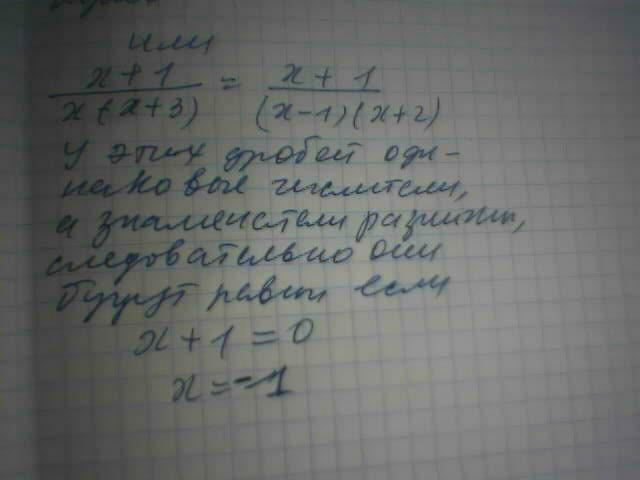 или
x+1 / x(x+3) = x+1 / (x-1)(x+2)
У этих дробей оди-
наковые числители,
а знаменатели различны,
следовательно они
будут равны если
x+1=0
x=-1